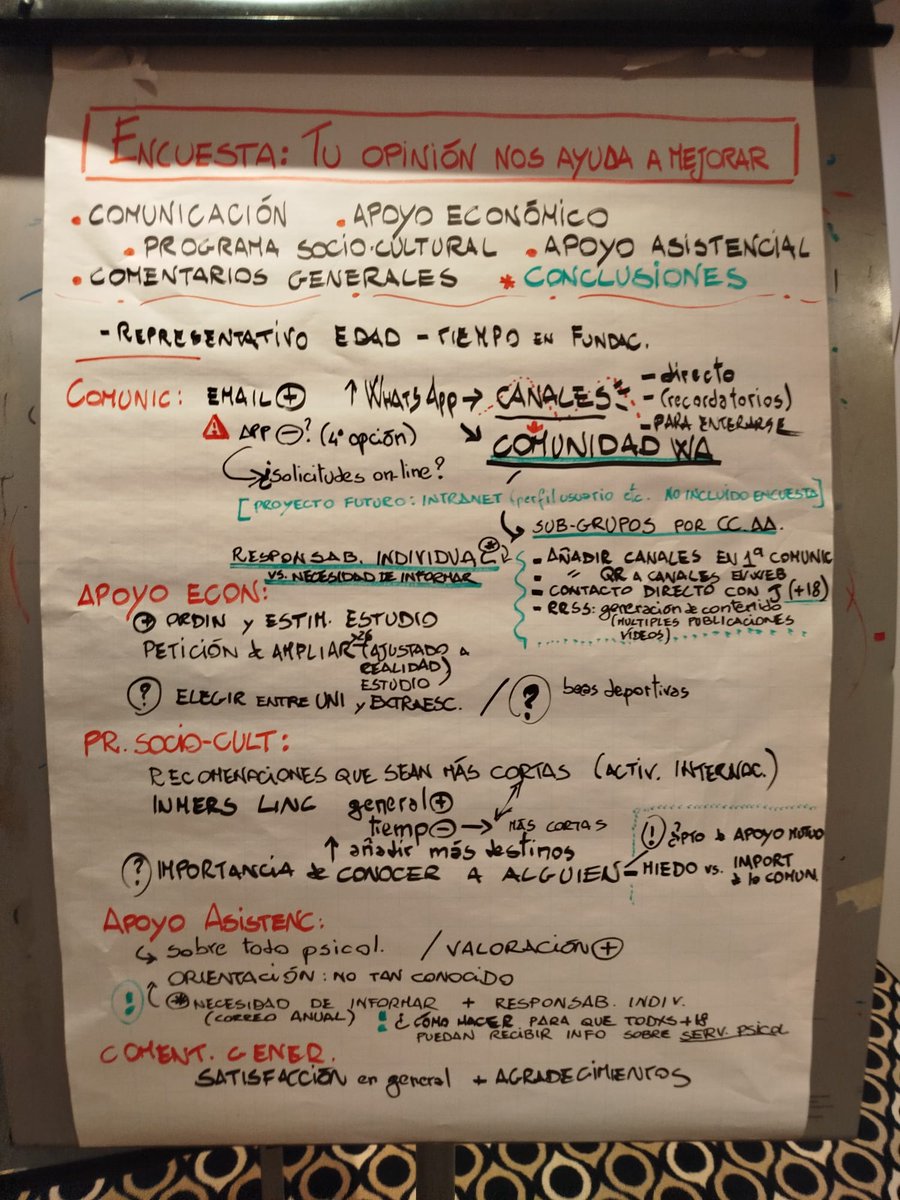 ENCUESTA: TU OPINIÓN NOS AYUDA A MEJORAR
• COMUNICACIÓN • APOYO ECONÓMICO
• PROGRAMA SOCIO-CULTURAL • APOYO ASISTENCIAL
• COMENTARIOS GENERALES * CONCLUSIONES
- REPRESENTATIVO EDAD - TIEMPO EN FUNDAC.
COMUNIC: EMAIL + ↑ WHATSAPP → CANALES
- directo
- (recordatorios)
- PARA ENTERARSE
APP - ? (4ª opción)
COMUNIDAD WA
¿solicitudes on-line?
[PROYECTO FUTURO: INTRANET (perfil usuario etc. NO INCLUÍDO ENCUESTA]
SUB-GRUPOS POR CC.AA.
RESPONSAB. INDIVIDUAL *
VS. NECESIDAD DE INFORMAR
- AÑADIR CANALES EN 1ª COMUNIC
- " QR A CANALES EN WEB
- CONTACTO DIRECTO CON J (+18)
- RRSS: generación de contenido
(MULTIPLES PUBLICACIONES
VIDEOS)
APOYO ECON:
+ ORDIN y ESTIM. ESTUDIO
PETICIÓN d AMPLIAR >26 (AJUSTADO A
REALIDAD)
ESTUDIO
? ELEGIR ENTRE UNI y EXTRAESC. / ? becas deportivas
PR. SOCIO-CULT:
RECOMENACIONES QUE SEAN MÁS CORTAS (ACTIV. INTERNAC.)
INMERS LING general +
tiemp - → MÁS CORTAS
↑ añadir más destinos
! ? pto d APOYO MUTUO
? IMPORTANCIA de CONOCER A ALGUIEN - MIEDO vs. IMPORT
d lo COMUN.
APOYO ASISTENC:
↳ sobre todo psicol. / VALORACIÓN +
ORIENTACIÓN: NO TAN CONOCIDO
! * NECESIDAD DE INFORMAR + RESPONSAB. INDIV.
(CORREO ANUAL) ! ¿CÓMO HACER PARA QUE TODXS +18
PUEDAN RECIBIR INFO SOBRE SERV. PSICOL
COMENT. GENER.
SATISFACCIÓN en general + AGRADECIMIENTOS